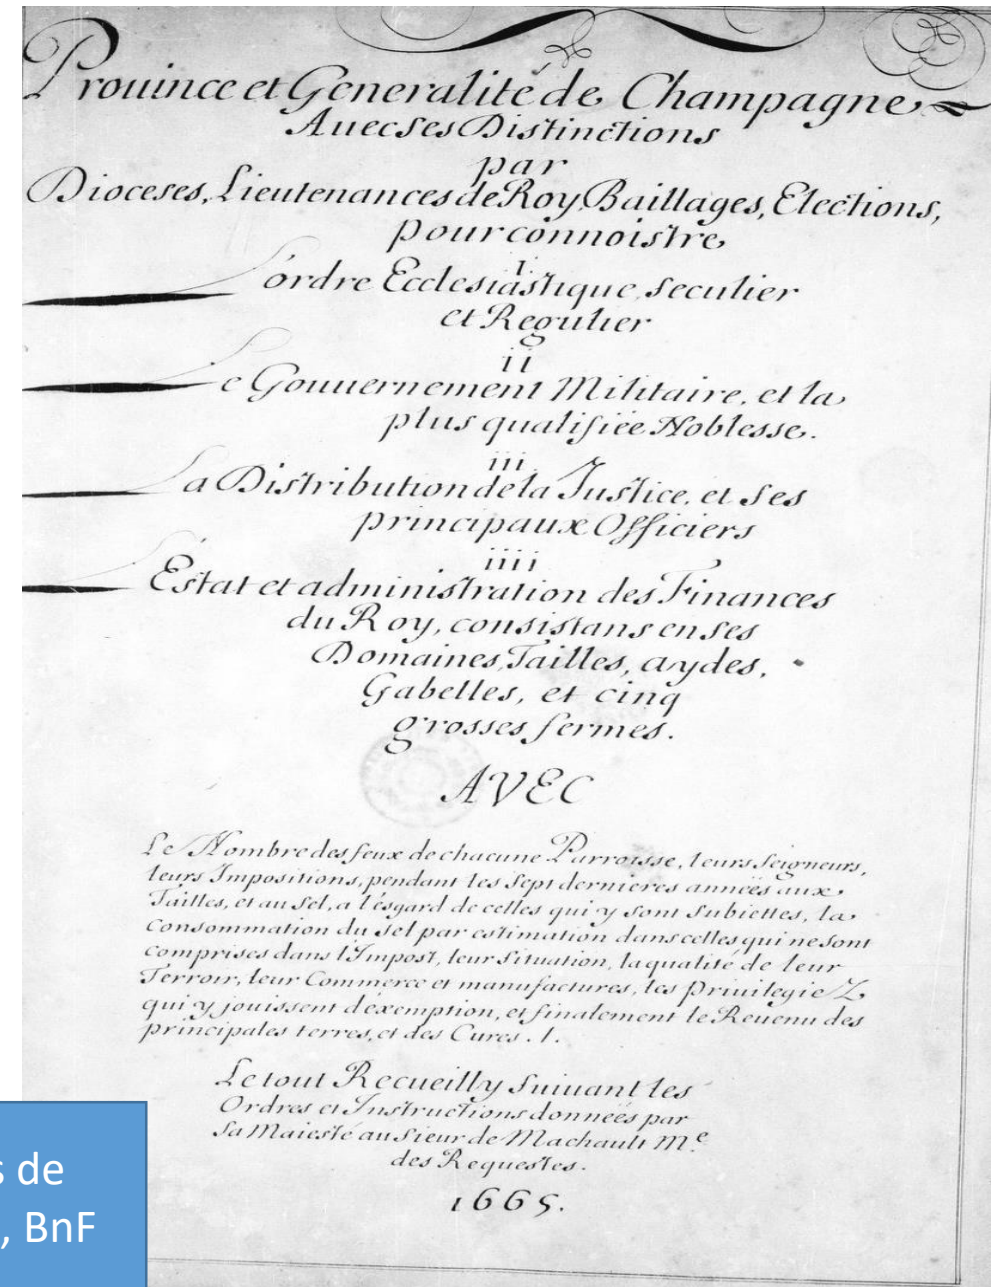 Prouince et Generalité de Champagne
Auec Ses Distinctions
par
Dioceses, Lieutenances de Roy, Baillages, Elections,
pour connoistre
I
L'ordre Ecclesiastique, Seculier
et Regulier
ii
Le Gouuernement Militaire, et la
plus qualifiée Noblesse.
iii
La Distribution de la Justice, et Ses
principaux Officiers
iiii
L'Estat et administration des Finances
du Roy, consistans en Ses
Domaines, Tailles, aydes,
Gabelles, et cinq
grosses fermes.
AVEC
Le Nombre des feux de chacune Parroisse, leurs Seigneurs,
leurs Impositions, pendant les Sept dernieres années aux
Tailles, et au Sel, a l'esgard de celles qui y sont Subiettes, la
Consommation du Sel par estimation dans celles qui ne Sont
comprises dans l'Impost, leur Situation, la qualité de leur
Terroir, leur Commerce et manufactures, les PrivilegieZ
qui y jouissent d'exemption, et finalement le Reuenu des
principales terres, et des Cures . / .
Le tout Recueilly Suiuant les
Ordres et Instructions données par
Sa Maiesté au Sieur de Machault Me.
des Requestes.
1665.
s de
, BnF